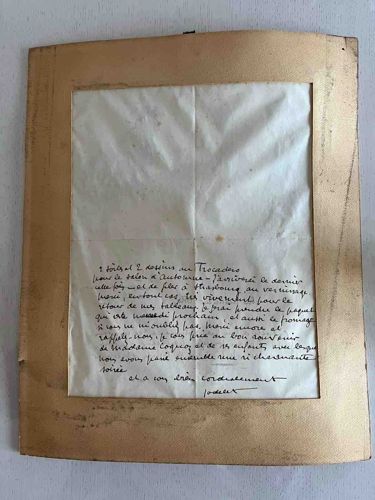 2 toiles et 2 dessins au Trocadero
pour le salon d'Automne - J'arriverai le dernier
cette fois - et de filer à Strasbourg au vernissage
merci, en tout cas, très vivement pour le
retour de mes tableaux, je ferai prendre le paquet
qui reste mercredi prochain, et aussi le fromage
si vous ne m'oubliez pas, merci encore et
rappelez-nous, je vous prie au bon souvenir
de Madame et de ses enfants avec lesquels
nous avons passé ensemble une si charmante
soirée
et à vous bien cordialement